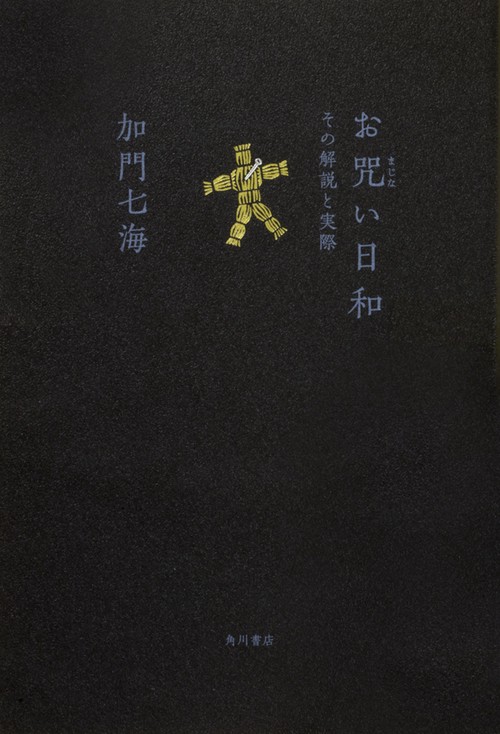 お咒い日和
まじな
その解説と実際
加門七海
角川書店